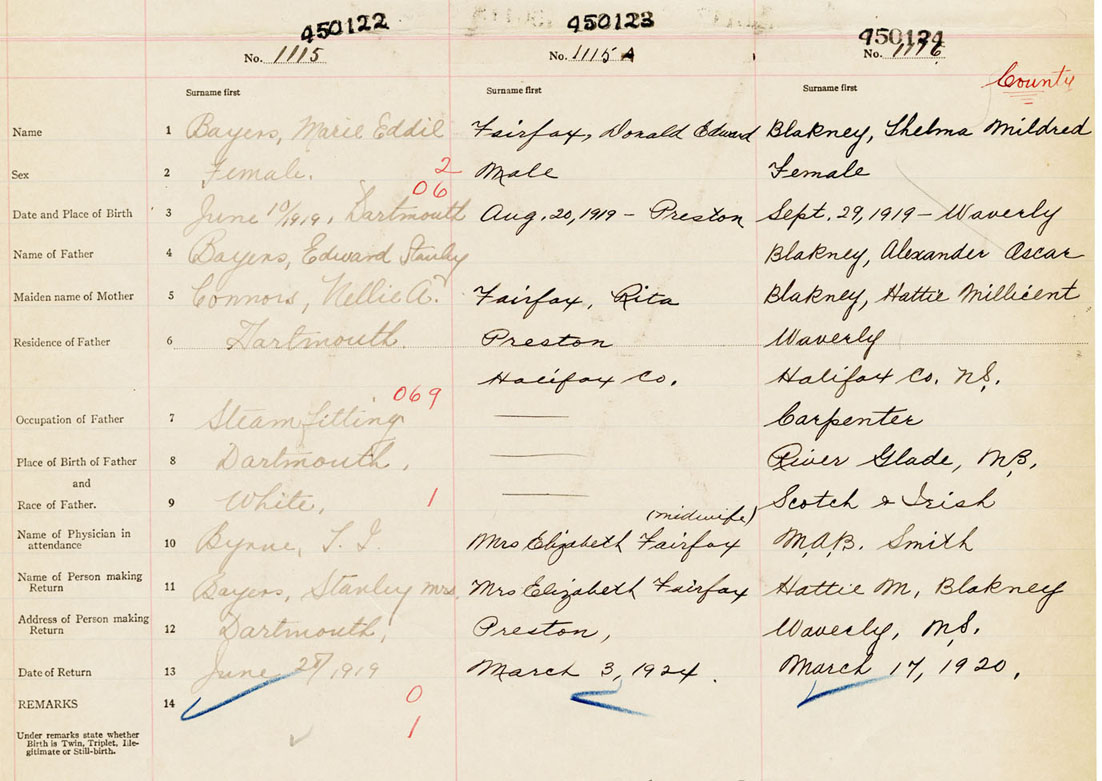 450122 450123 450124
No. 1115 No. 1115 A No. 1116
County
Surname first Surname first Surname first
Name 1 Bayers, Marie Eddil Fairfax, Donald Edward Blakney, Thelma Mildred
Sex 2 Female. 2 Male Female
06
Date and Place of Birth 3 June 10/1919, Dartmouth Aug. 20, 1919 - Preston Sept. 29, 1919 - Waverly
Name of Father 4 Bayers, Edward Stanley Blakney, Alexander Ascar
Maiden name of Mother 5 Connors, Nellie A. Fairfax, Rita Blakney, Hattie Millicent
Residence of Father 6 Dartmouth. Preston Waverly
Halifax Co. Halifax Co. N.S.
069
Occupation of Father 7 Steam fitting Carpenter
Place of Birth of Father 8 Dartmouth, River Glade, N.B.
and
Race of Father. 9 White, 1 Scotch & Irish
(midwife)
Name of Physician in attendance 10 Byrne, T. I. Mrs Elizabeth Fairfax M.A.B. Smith
Name of Person making Return 11 Bayers, Stanley Mrs. Mrs Elizabeth Fairfax Hattie M. Blakney
Address of Person making Return 12 Dartmouth, Preston, Waverly, N.S.
Date of Return 13 June 28/1919 March 3, 1924. March 17, 1920.
REMARKS 14 0
Under remarks state whether 1
Birth is Twin, Triplet, Ille-
gitimate or Still-birth.